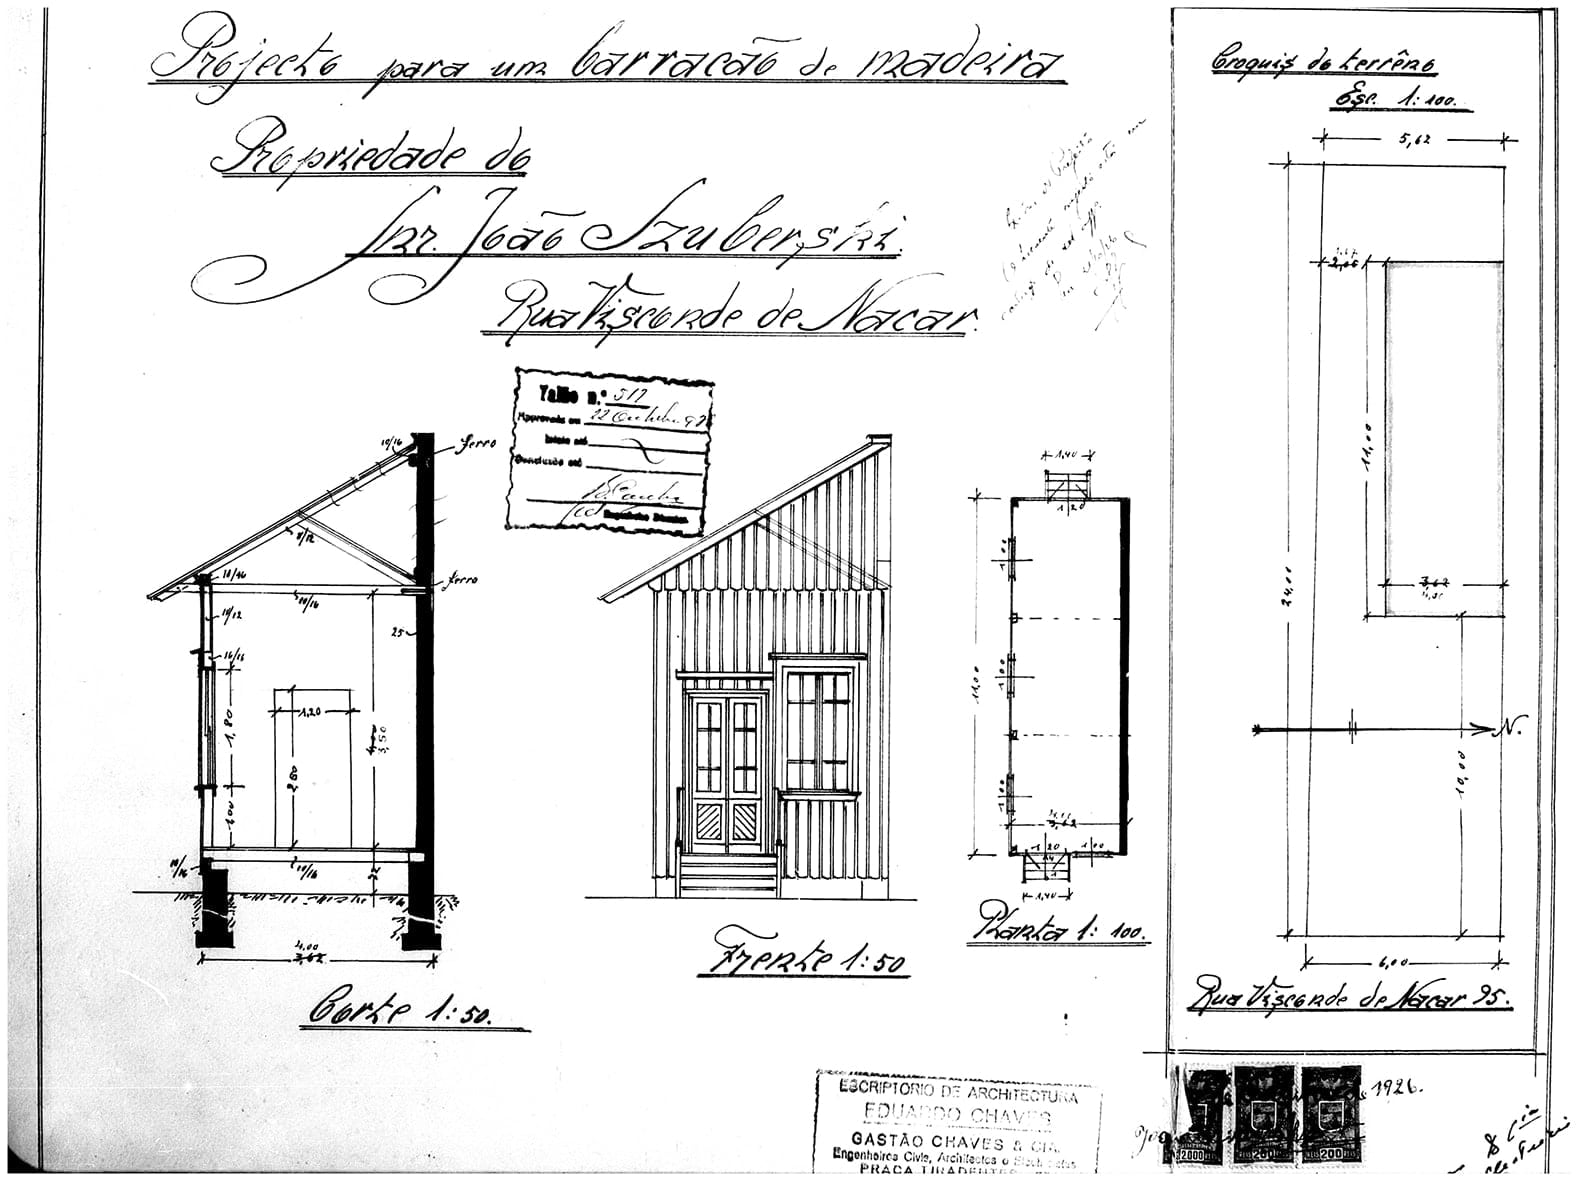 Projecto para um barracão de madeira
Propriedade do
Snr. João Szuberski.
Rua Visconde de Nacar.
Talão n.º 517
Approvado em 22
Inicio até
Concluido até
Engenheiro
10/16
ferro
8/12
10/16
ferro
10/16
10/12
25
16/16
1,20
1,80
2,80
3,50
1,00
10/16
10/16
4,00
3,62
Corte 1:50.
Frente 1:50
1,40
1,20
1,00
11,00
1,00
1,00
3,62
1,20
1,00
1,40
Planta 1:100.
Croquis do terrêno
Esc. 1:100.
5,62
2,05
11,00
24,00
3,62
N.
10,00
6,00
Rua Visconde de Nacar 95.
ESCRIPTORIO DE ARCHITECTURA
EDUARDO CHAVES
GASTÃO CHAVES & CIA.
Engenheiros Civis, Architectos e
PRAÇA TIRADENTES
de 1926.
2.000
200
200